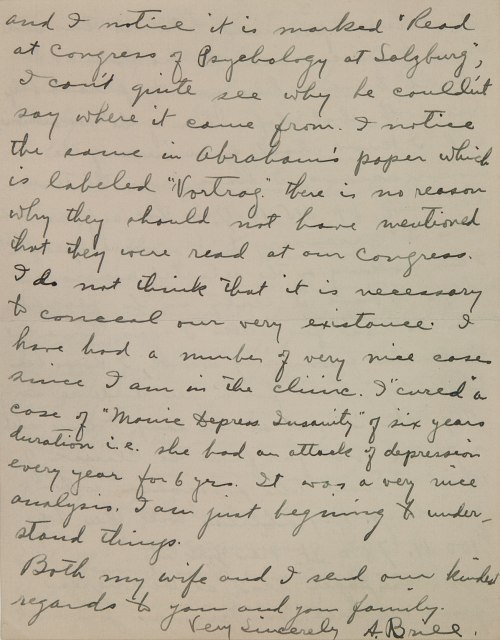 and I notice it is marked "Read
at Congress of Psychology at Salzburg",
I can't quite see why he couldn't
say where it came from. I notice
the same in Abraham's paper which
is labeled "Vortrag." there is no reason
why they should not have mentioned
that they were read at our Congress.
I do not think that it is necessary
to conceal our very existance. I
have had a number of very nice cases
since I am in the clinic. I "cured" a
case of "Manic Depress. Insanity" of six years
duration i.e. she had an attack of depression
every year for 6 yrs. It was a very nice
analysis. I am just begining to under-
stand things.
Both my wife and I send our kindest
regards to you and your family.
Very Sincerely A. Brill.